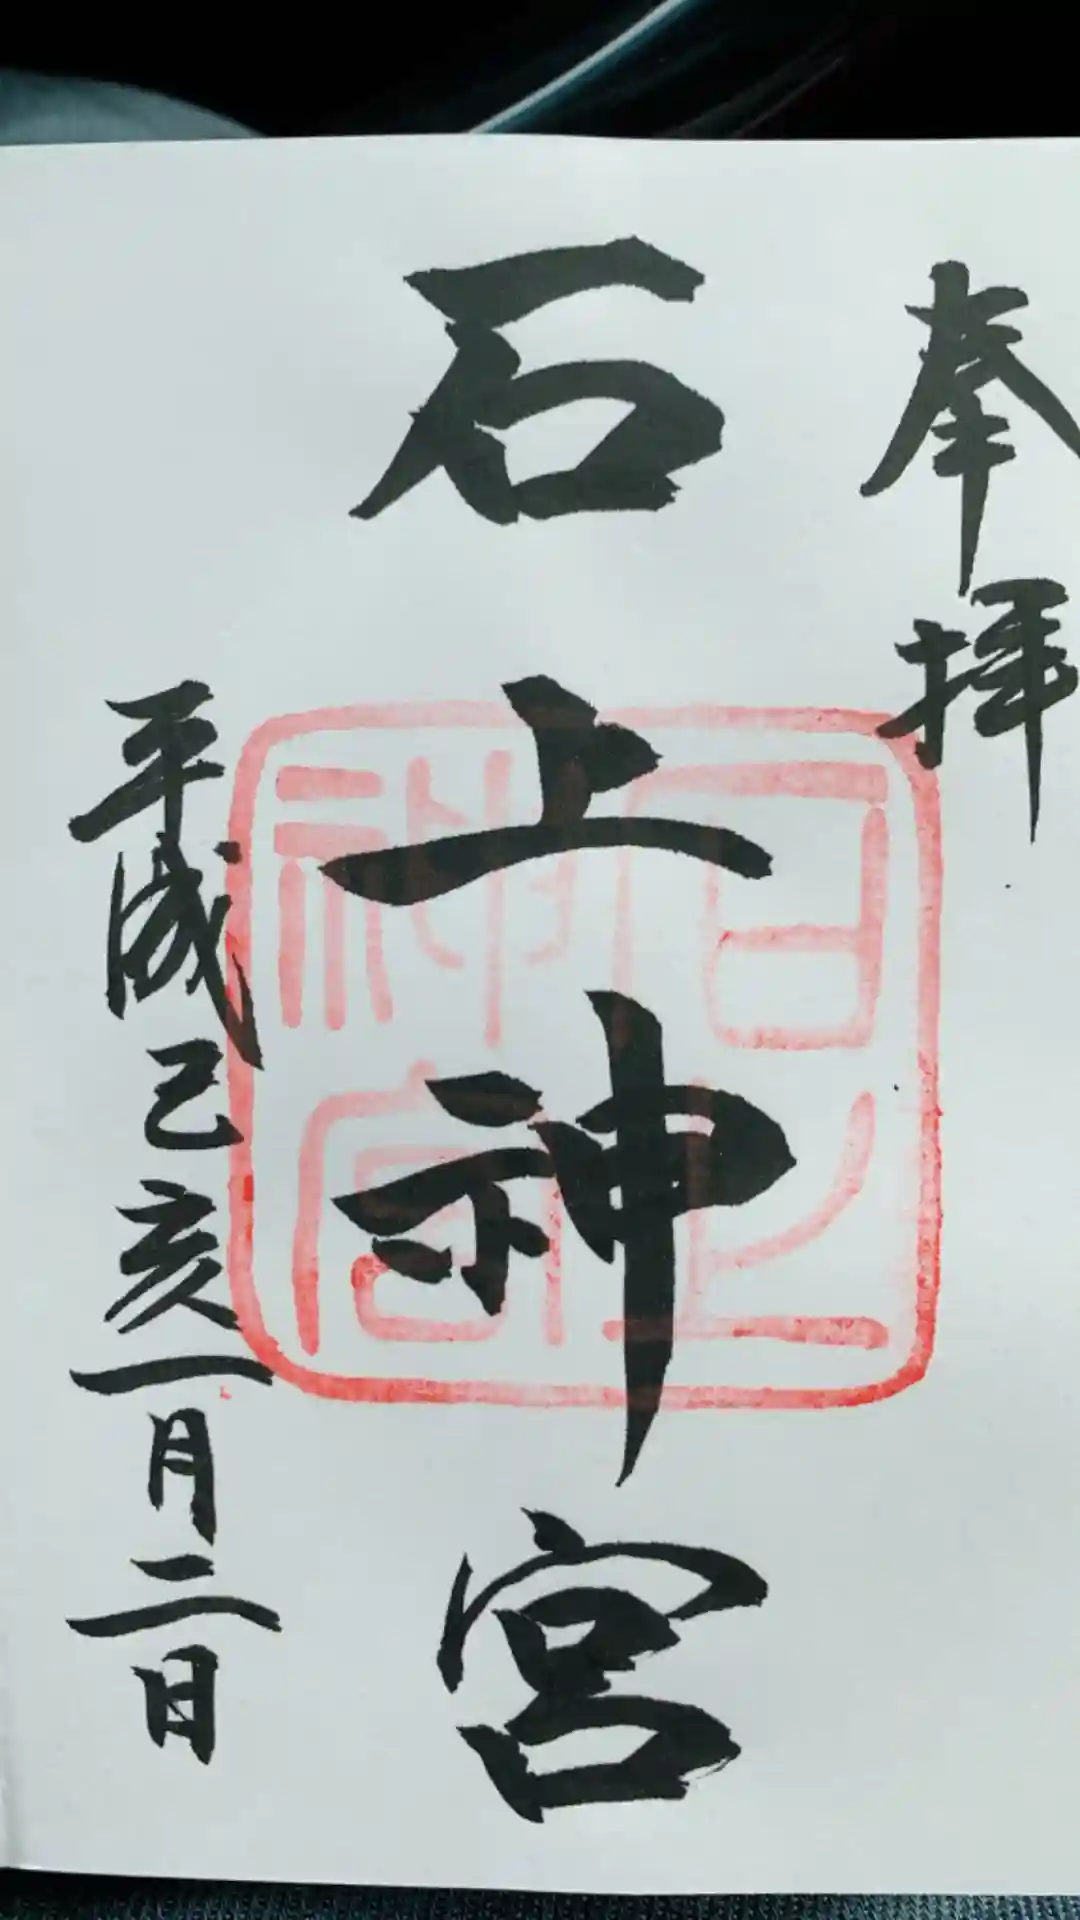 奉拝
石上神宮
石上神宮
平成己亥一月二日